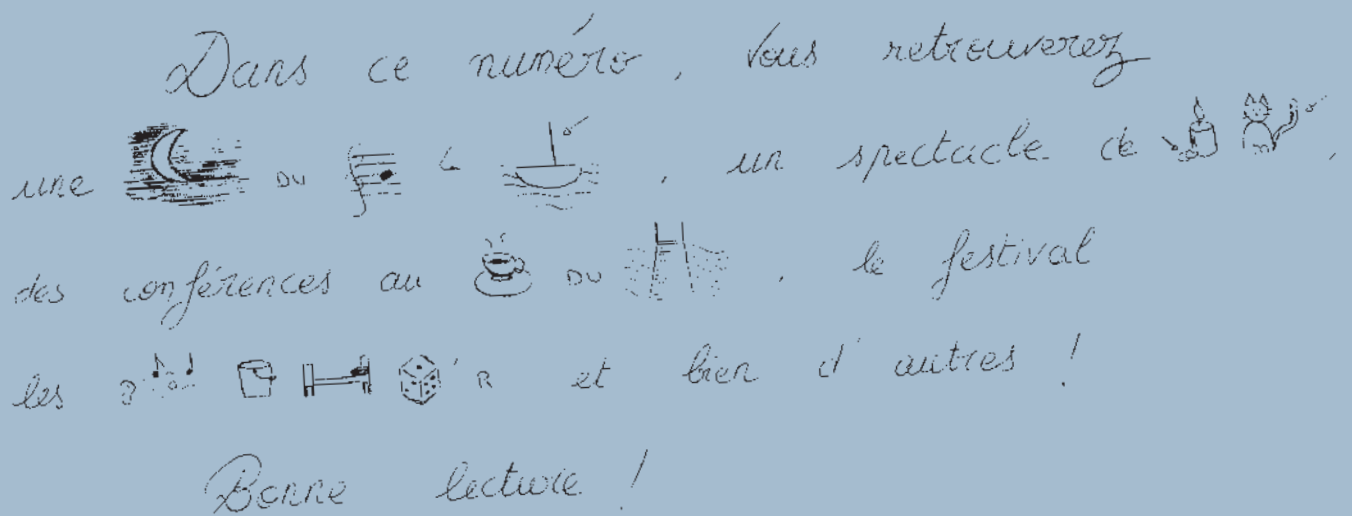 Dans ce numéro, vous retrouverez
une DU L, un spectacle de,
des conférences au DU, le festival
les 'R et bien d'autres !
Bonne lecture !